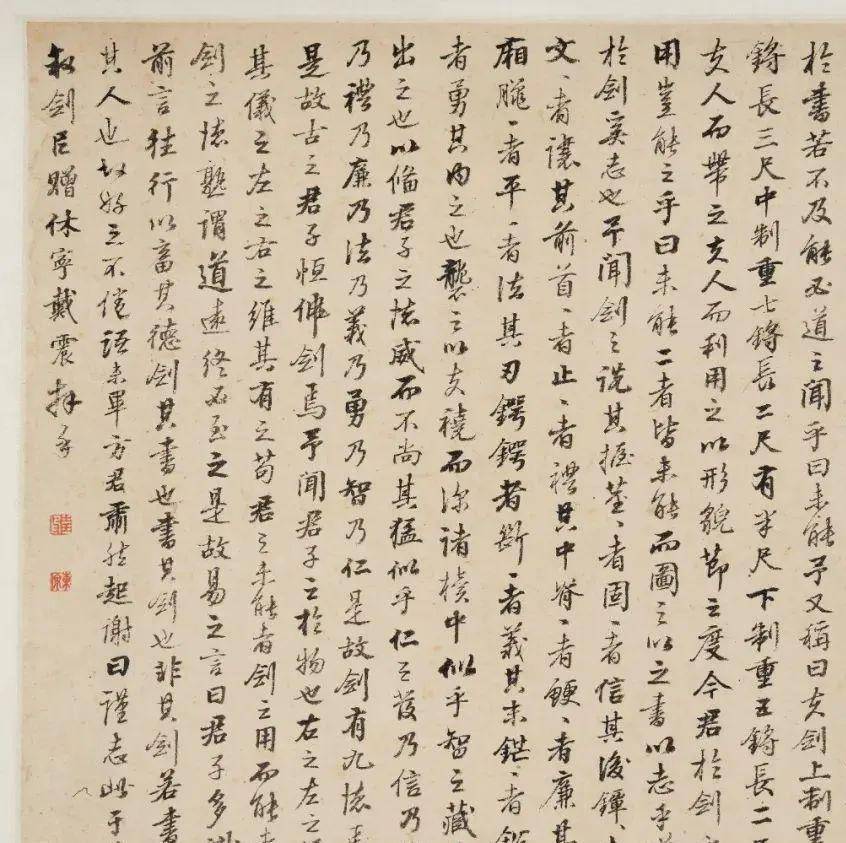 於書若不及能必道之聞乎曰未能予又稱曰夫劍上制重
鋝長三尺中制重七鋝長二尺有半尺下制重五鋝長二
夫人而帶之夫人而利用之以形貌節之度今君於劍
用豈能之乎曰未能二者皆未能而圖之以之書以志乎
於劍奚志也予聞劍之說其握莖〻者固〻者信其後鐔
文〻者讓其前首〻者止〻者禮其中脊〻者鯁〻者廉其
廂臘〻者平〻者法其刃鍔鍔者斷〻者義其末鋩〻者
者勇其內之也襲之以夫襓而深諸櫝中似乎智之藏
出之也以脩君子之德威而不尚其猛似乎仁之發乃信乃
乃禮乃廉乃法乃義乃勇乃智乃仁是故劍有九德
是故古之君子恒佩劍焉予聞君子之於物也右之左之
其儀之左之右之維其有之苟君之未能者劍之用而能
劍之德孰謂道遠終必至之是故易之言曰君子多
前言往行以畜其德劍其書也書其劍也非其劍若書
其人也故好之不倦語未畢方君肅然起謝曰謹志此于
敘劍臣贈休寧戴震